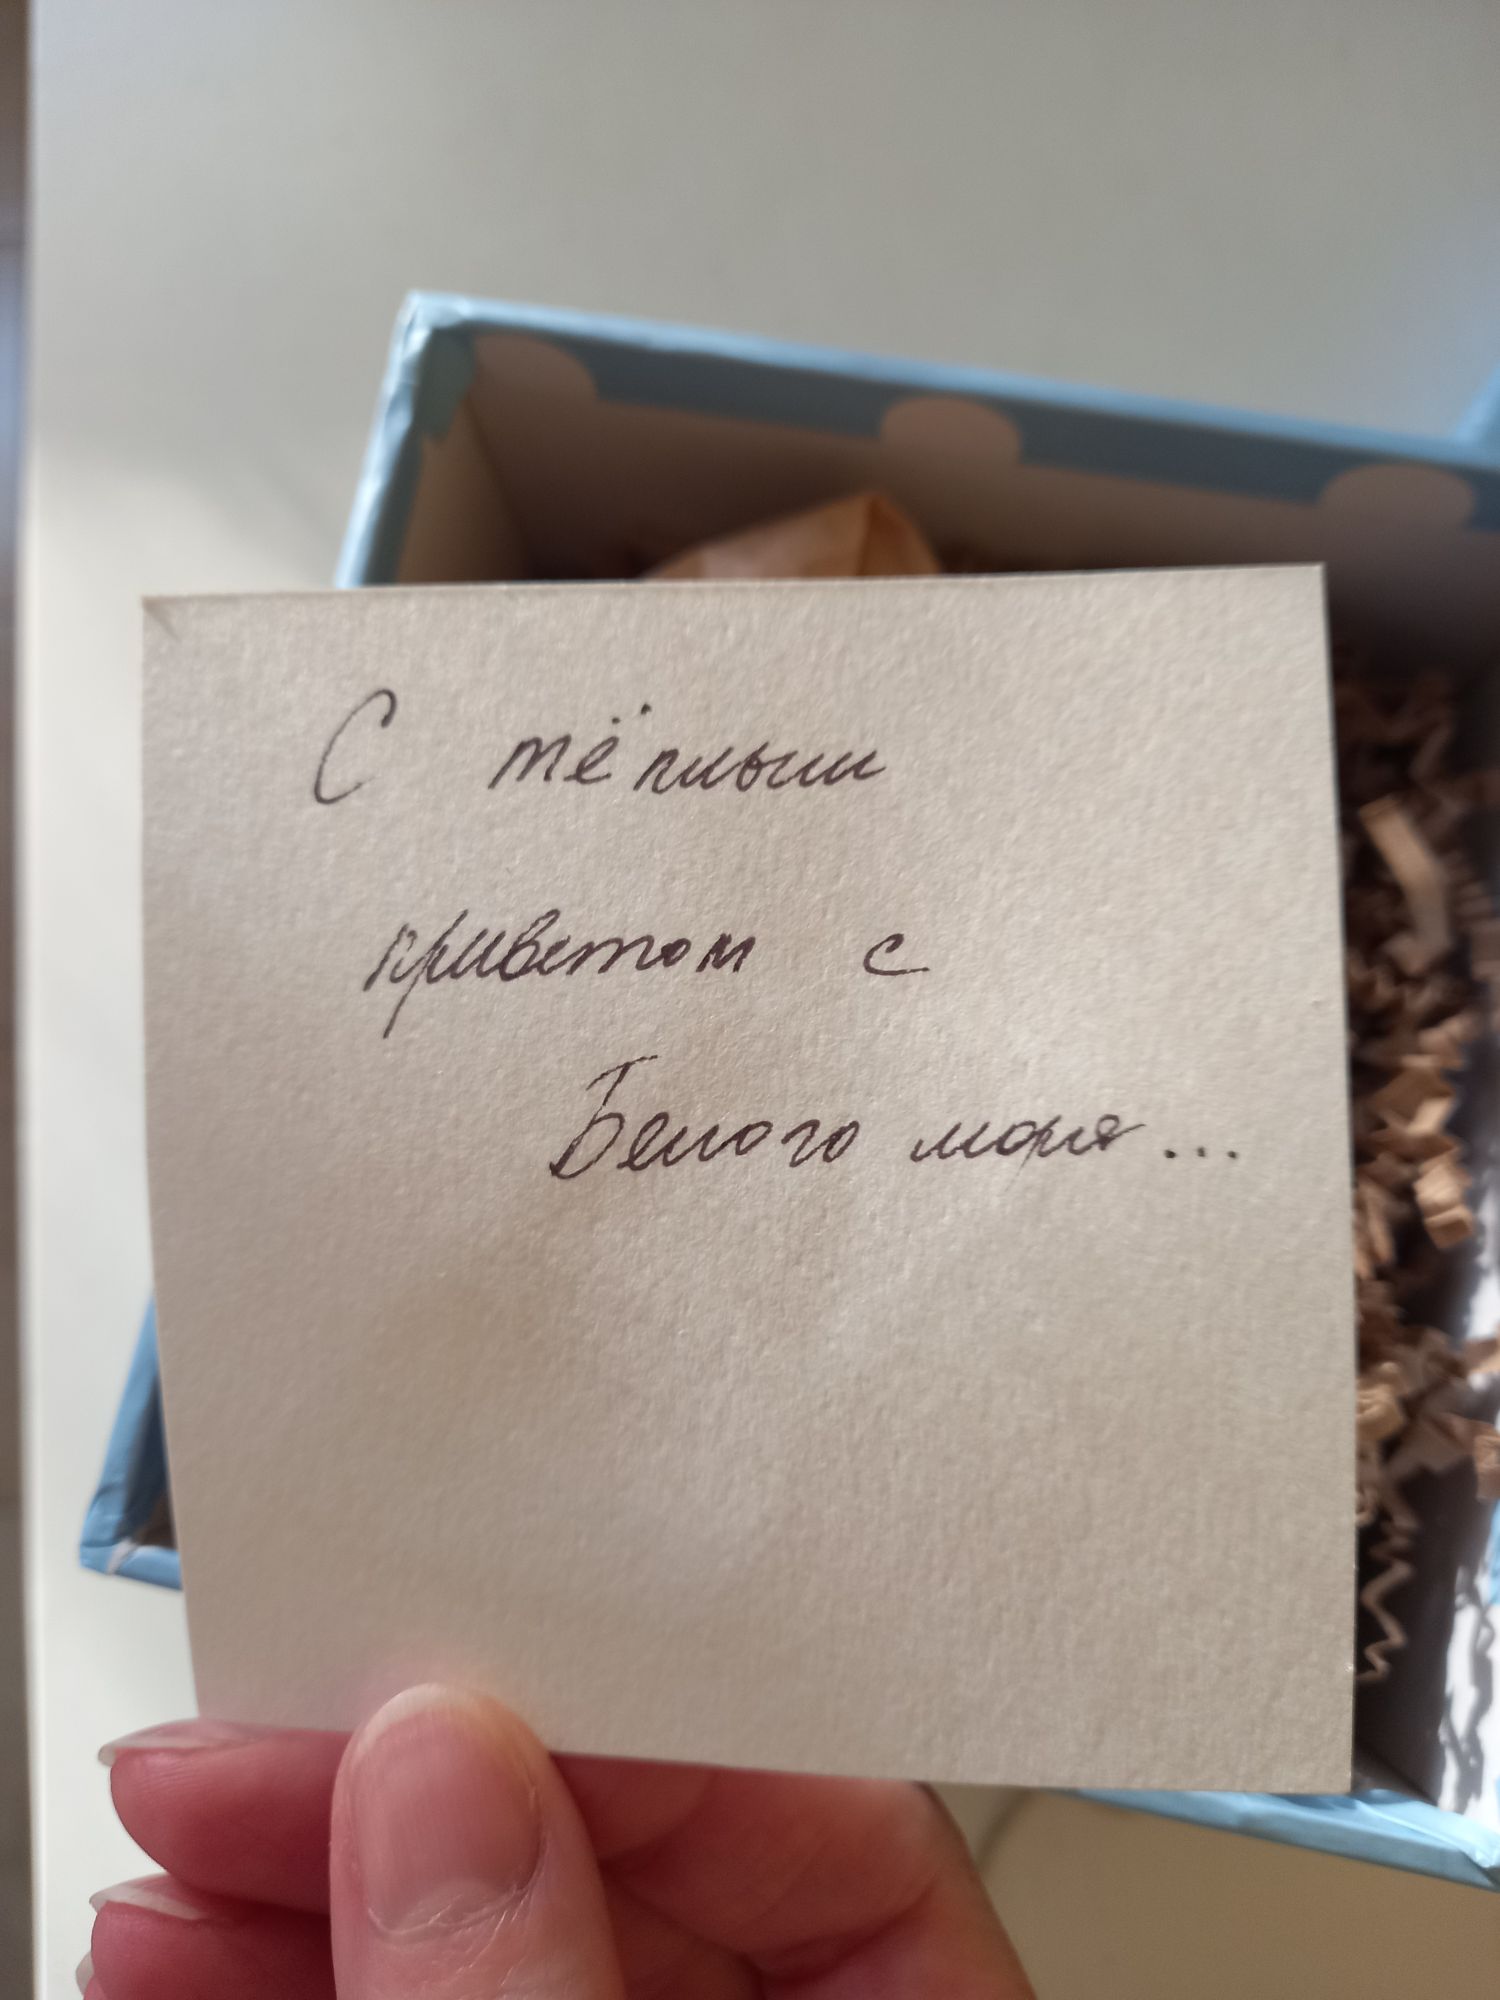 С тёплым
приветом с
Белого моря...